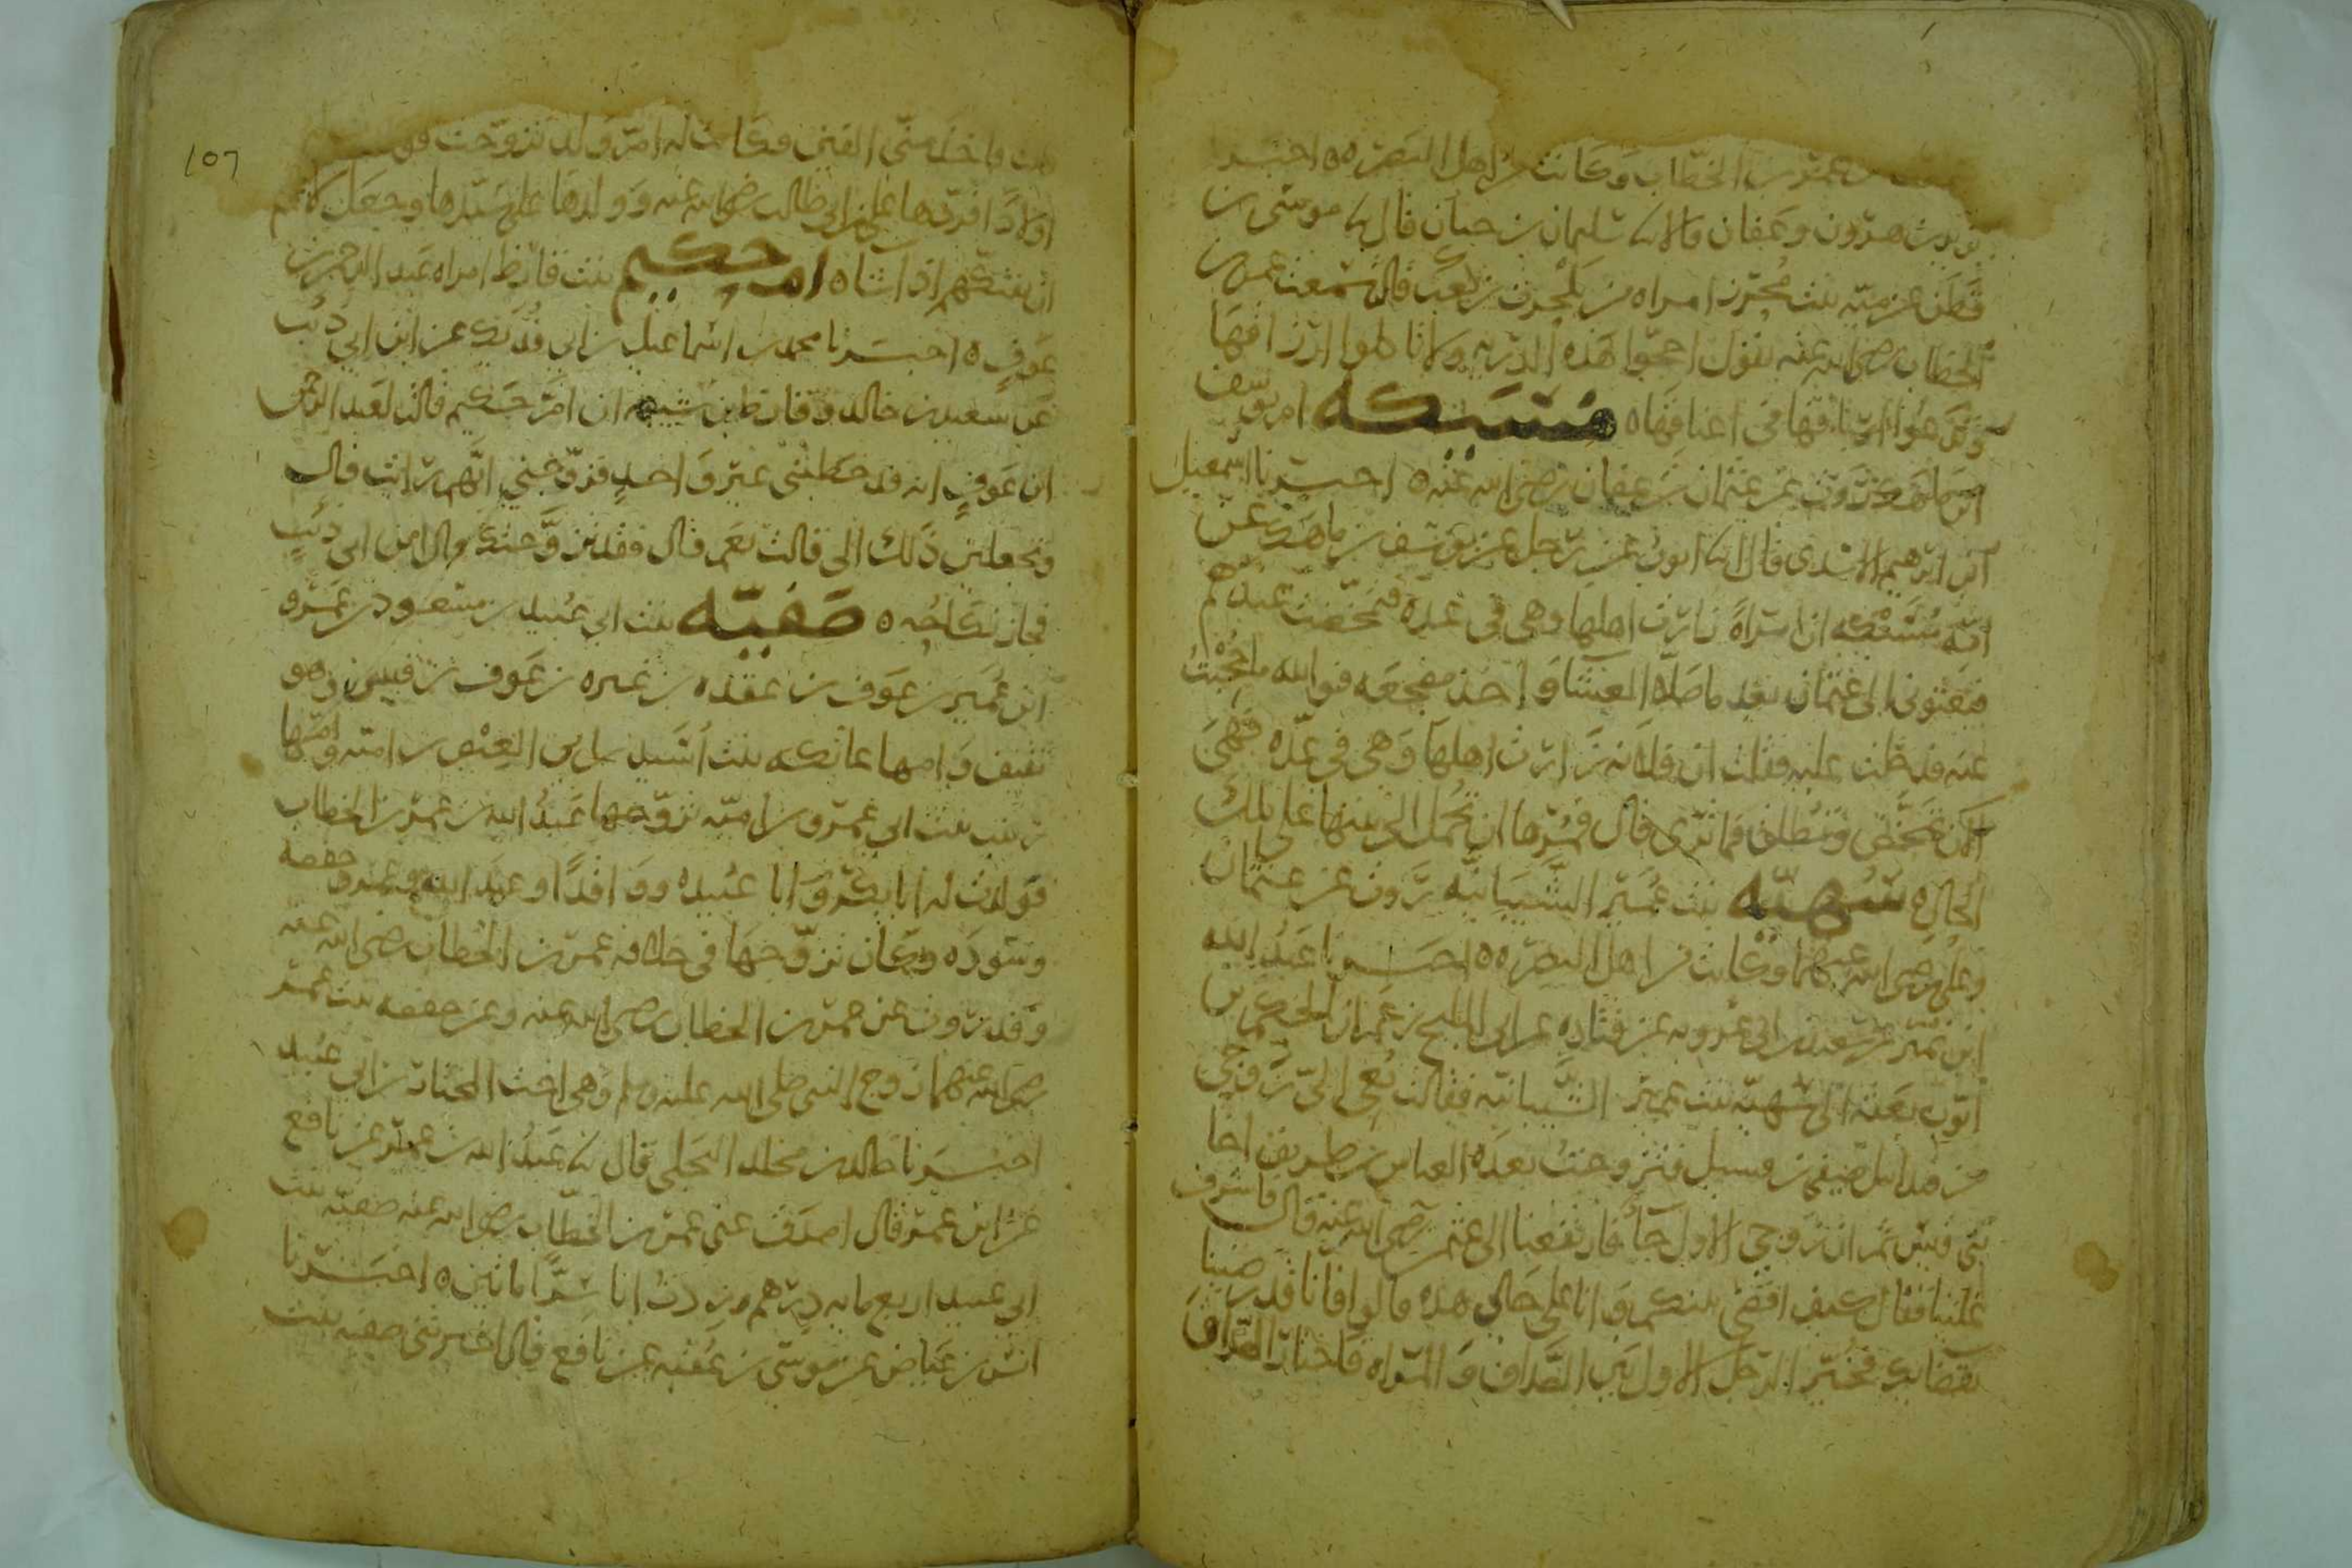 عمر بن الخطاب وكانت من اهل البصره ه اخبرنا
يزيد بن هرون وعفان قالا نا سليمان بن حيان قال نا موسى بن
قطن عن ميه بنت محرز امراه من بلحرث بن كعب قالت سمعت عمر بن
الخطاب رضى الله عنه يقول احجوا هذه الذريه ولا تاكلوا ارزاقها
وتدعوا ارباقها فى اعناقها ه مسيكه ام يوسف
ابن ماهك تروت عن عثمان بن عفان رضى الله عنه ه اخبرنا اسمعيل
ابن ابرهيم الاسدى قال نا ايوب عن رجل عن يوسف بن ماهك عن
امه مسيكه ان امراة زارت اهلها وهى فى عدة فتمخضت عندهم
فبعثونى الى عثمان بعد ما صلاه العشا واخذ مضجعه فوالله ما حجبت
عنه فدخلت عليه فقلت ان فلانه زارت اهلها وهى فى عده فهى
تمخض وتطلق فما ترى قال فمرها ان تحمل الى بيتها على تلك
الحال ه سهيه بنت عمير الشيبانيه تروت عن عثمان
وعلى رضى الله عنهما وكانت من اهل البصره ه اخبرنا عبد الله
ابن نمير عن سعيد بن ابى عروبه عن قتاده عن ابى المليح بن عمران الحكم بن
ايوب بعثه الى سهيه بنت عمير الشيبانيه فقالت نعى الى زوجى
من قندابيل صيفى بن فسيل فتزوجت بعده العباس بن طريف اخا
بنى قيس ثم ان زوجى الاول جا فارتفعنا الى عثمن رضى الله عنه قال فاشرف
علينا فقال كيف اقضى بينكم وانا على حالى هذه قالوا فانا قد رضينا
بقضايك فخير الرجل الاول بين الصداق والمراه فاختار الصداق
فاخذ منى الفين وكانت له ام ولد تزوجت
اولادا فردها على بن ابى طالب رضى الله عنه وولدها على سيدها وجعل لابيهم
ان يفتكهم اذا شا ه ام حكيم بنت قارظ امراه عبد الرحمن بن
عوف ه اخبرنا محمد بن اسماعيل بن ابى فديك عن ابن ابى ذئب
عن سعيد بن خالد وقارظ بن شيبه ان ام حكيم قالت لعبد الرحمن
ابن عوف انه قد خطبنى غير واحد فزوجنى ايهم رايت قال
وتجعلين ذلك الى قالت نعم قال فقد تزوجتك قال ابن ابى ذئب
فجاز نكاحه ه صفيه بنت ابى عبيد بن مسعود بن عمرو
ابن عمير بن عوف بن عقده بن غيره بن عوف بن قيس وهو
ثقيف وامها عاتكه بنت اسيد بن ابى العيص بن اميه وامها
زينب بنت ابى عمرو بن اميه تزوجها عبد الله بن عمر بن الخطاب
فولدت له ابا بكر وابا عبيده وواقدا وعبد الله وعمر وحفصه
وسوده وكان تزوجها فى خلافه عمر بن الخطاب رضى الله عنه
وقد روت عن عمر بن الخطاب رضى الله عنه وعن حفصه بنت عمر
رضى الله عنهما زوج النبى صلى الله عليه وسلم وهى اخت المختار بن ابى عبيد
اخبرنا خالد بن مخلد البجلى قال نا عبد الله بن عمر عن نافع
عن ابن عمر قال اصدق عنى عمر بن الخطاب رضى الله عنه صفيه بنت
ابى عبيد اربع مايه درهم وزدت انا سرا مائتين ه اخبرنا
انس بن عياض عن موسى بن عقبه عن نافع قال اخبرتنى صفيه بنت